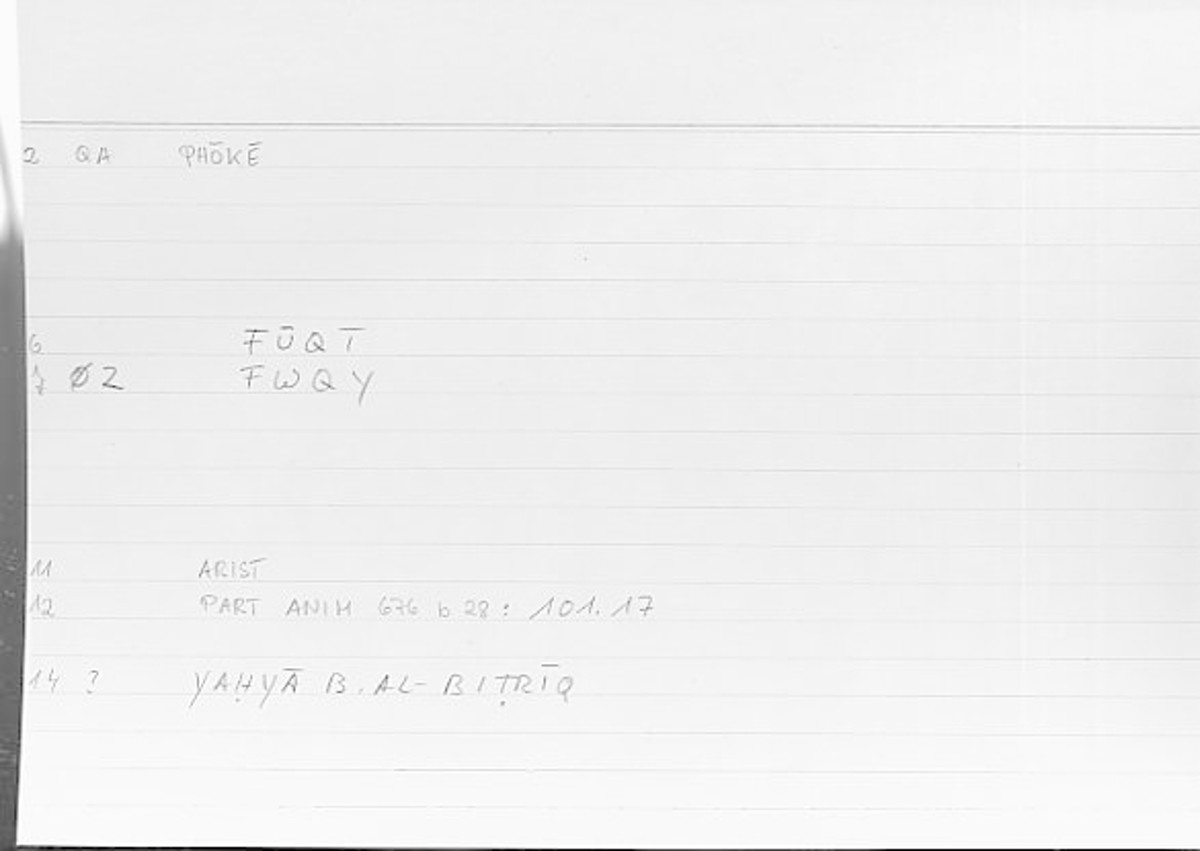 2 QA PHŌKĒ
6 FŪQĪ
7 ØZ FWQY
11 ARIST
12 PART ANIM 676 b 28: 101.17
14 ? YAḤYĀ B. AL-BIṬRĪQ